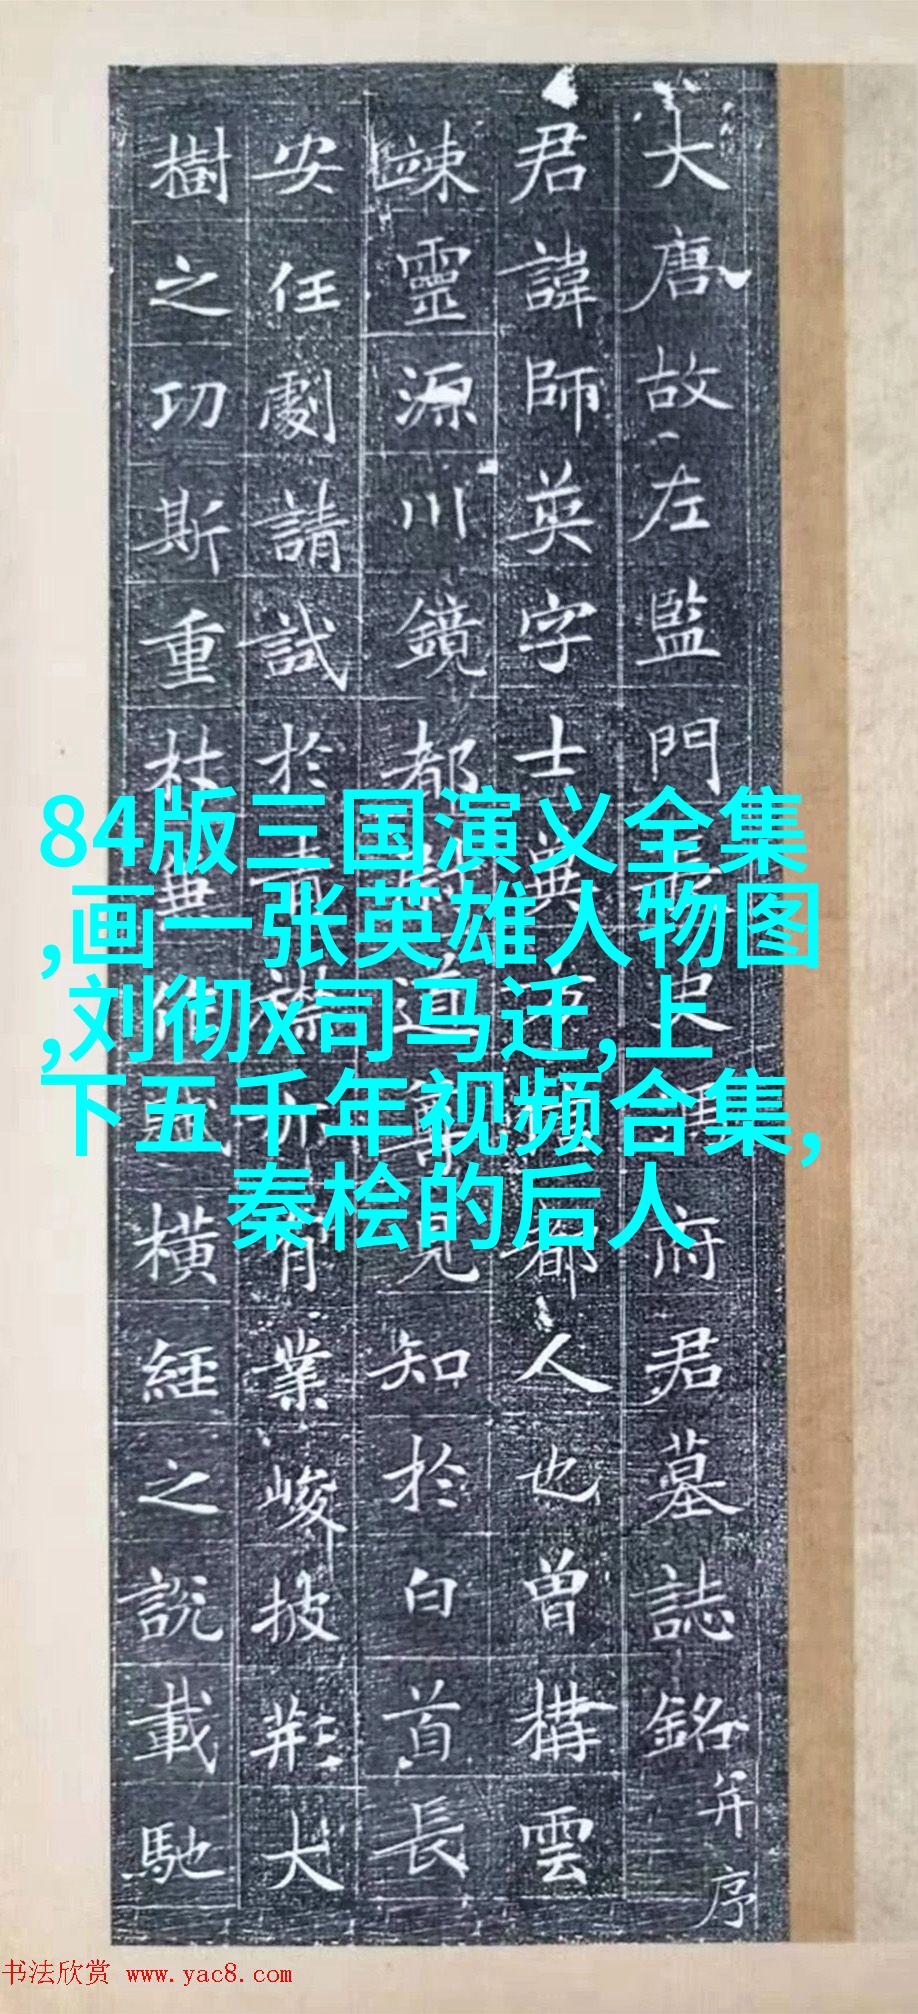 大唐故左監門史府君墓誌銘并序
君諱師英字士典都人也曾構雲
竦靈源川鏡都尉道寧見知於白首長
安任劇請試於青襟亦有業峻披荊大
樹之功斯重杜橫經之說載馳
84版三国演义全集
,画一张英雄人物图
,刘彻x司马迁,上
下五千年视频合集,
秦桧的后人
书法欣赏 www.yac8.com